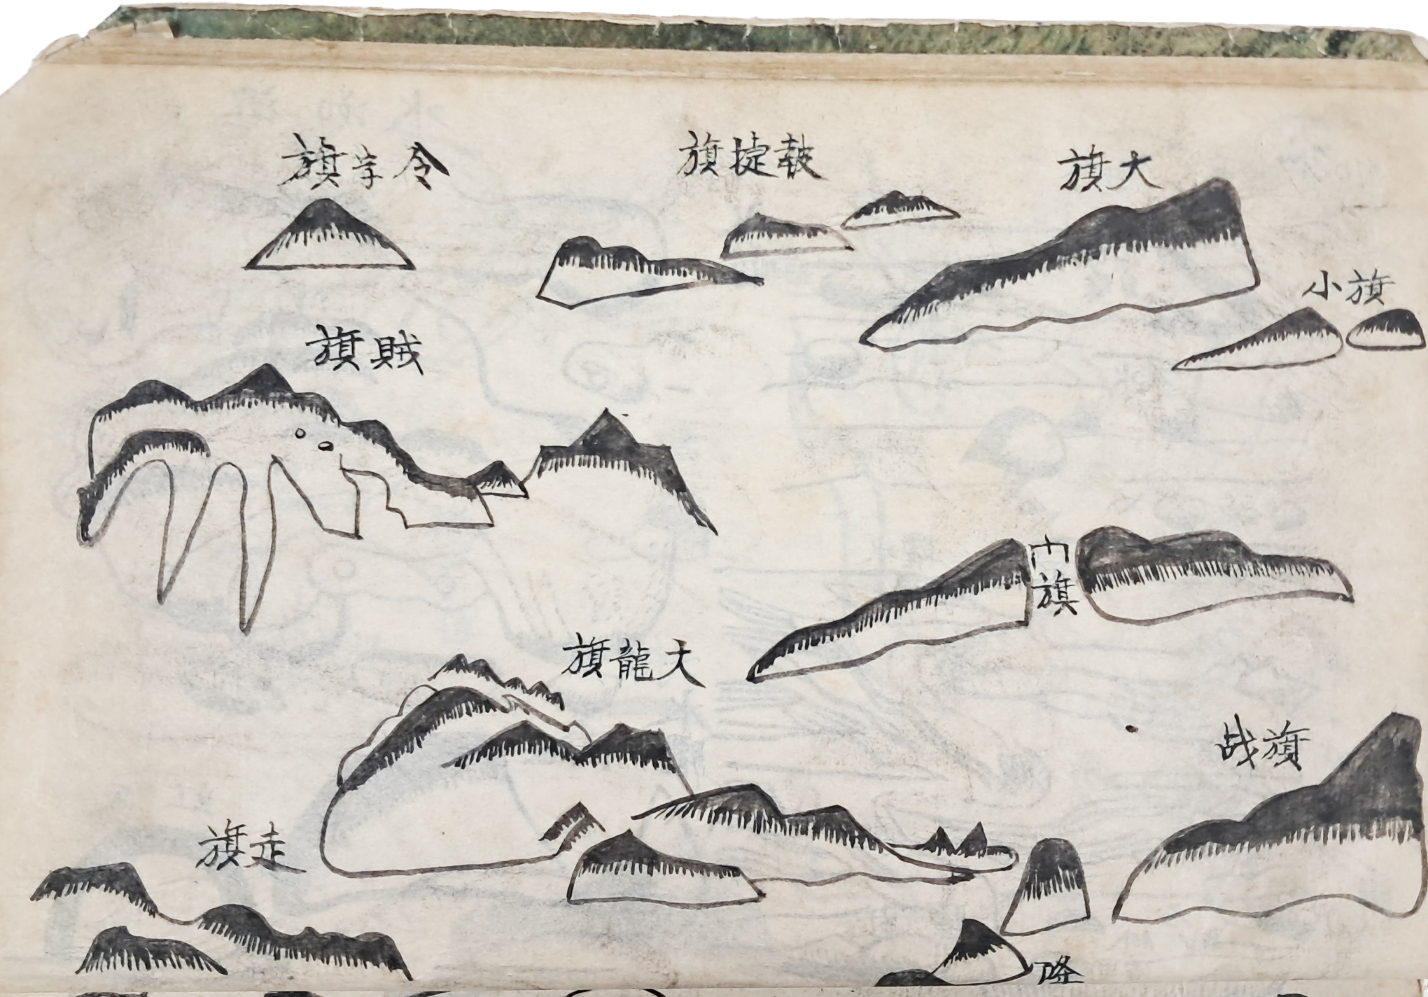 大旗
報捷旗
令字旗
小旗
賊旗
内旗
大龍旗
战旗
走旗
降